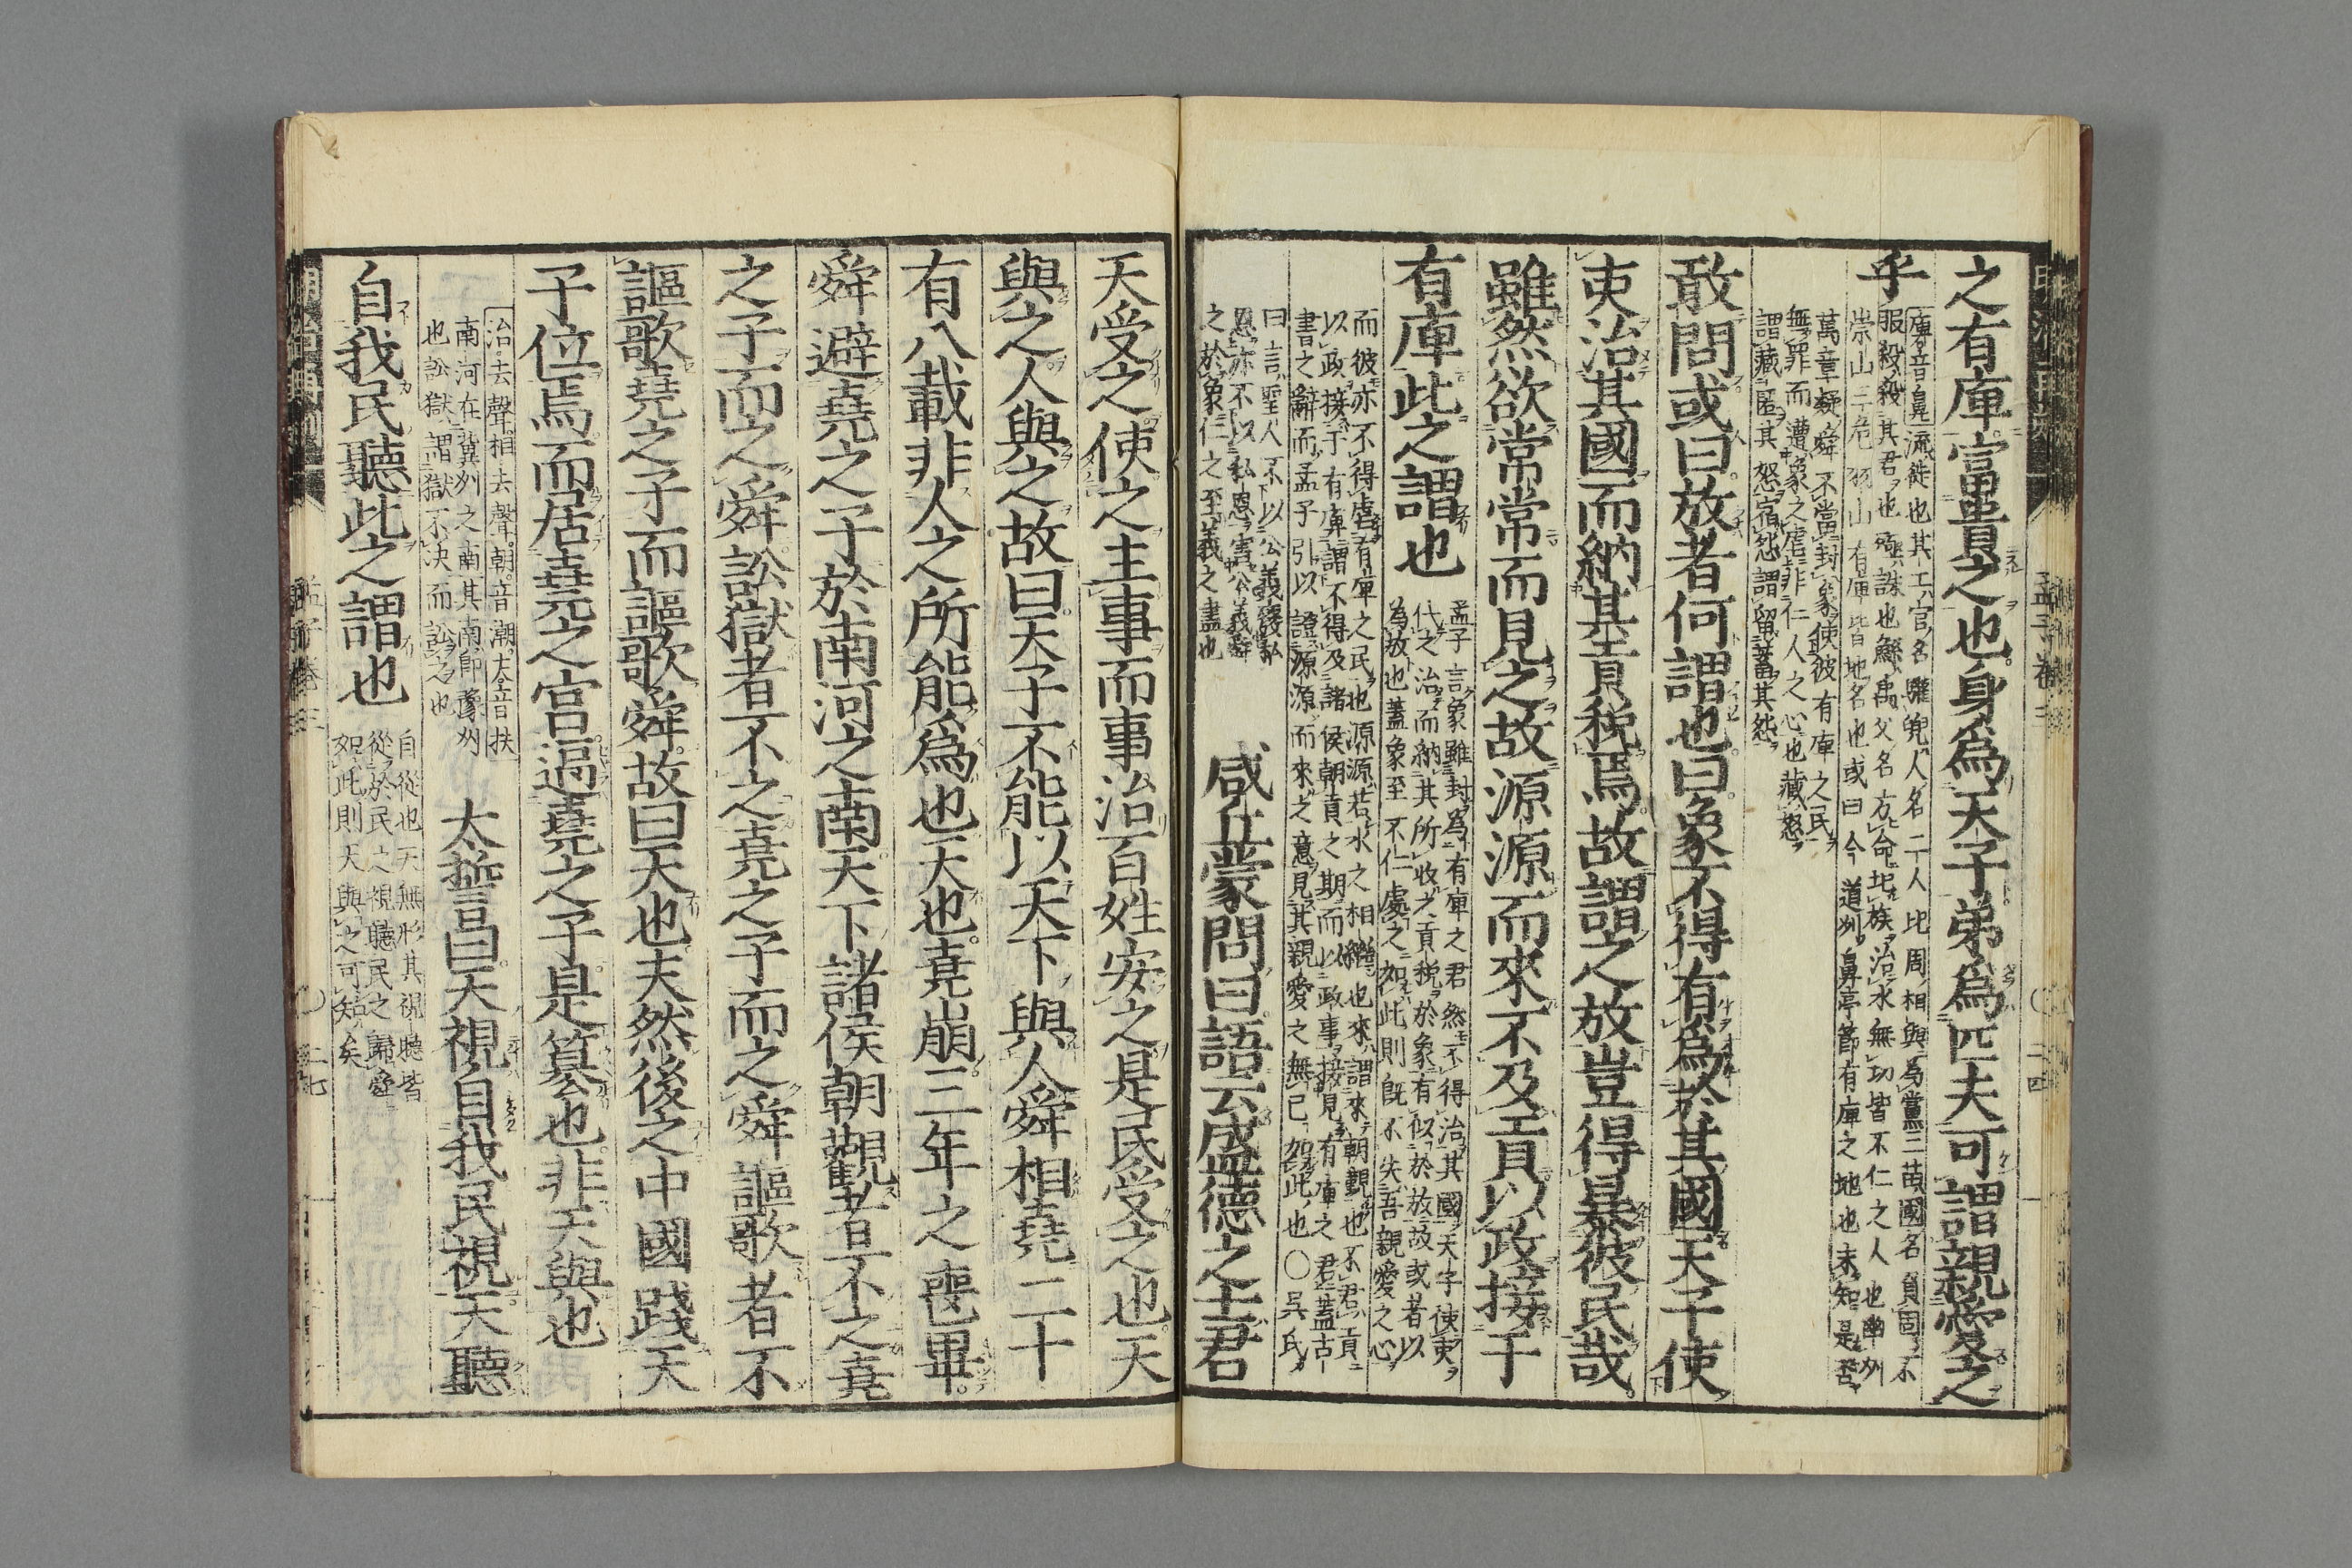 之有庳富貴之也身爲天子弟爲匹夫可謂親愛之
乎
庳音鼻流徙也共工官名驩兜人名二人比周相與爲黨三苗國名負固不
服殺殺其君也殛誅也鯀禹父名方命圮族治水無功皆不仁之人也幽州
崇山三危羽山有庳皆地名也或曰今道州鼻亭節有庳之地也未知是否
萬章疑舜不當封象使彼有庳之民
無罪而遭象之虐非仁人之心也藏怒
謂藏匿其怒宿怨謂留蓄其怨
敢問或曰放者何謂也曰象不得有爲於其國天子使
吏治其國而納其貢稅焉故謂之放豈得暴彼民哉
雖然欲常常而見之故源源而來不及貢以政接于
有庳此之謂也
孟子言象雖封爲有庳之君然不得治其國天子使吏
代之治而納其所收之貢稅於象有似於放故或者以
爲放也蓋象至不仁處之如此則既不失吾親愛之心
而彼亦不得虐有庳之民也源源若水之相繼也來謂來朝覲也不貢
以政接于有庳謂不得及諸侯朝貢之期而以政事接見有庳之君蓋古
書之辭而孟子引以證源源而來之意見其親愛之無已如此也〇吳氏
曰言聖人不以公義廢私
恩亦不以私恩害公義舜
之於象仁之至義之盡也
咸丘蒙問曰語云盛德之士君
孟子卷三
二四
天受之使之主事而事治百姓安之是民受之也天
與之人與之故曰天子不能以天下與人舜相堯二十
有八載非人之所能爲也天也堯崩三年之喪畢
舜避堯之子於南河之南天下諸侯朝覲者不之堯
之子而之舜訟獄者不之堯之子而之舜謳歌者不
謳歌堯之子而謳歌舜故曰天也夫然後之中國踐天
子位焉而居堯之宮逼堯之子是簒也非天與也
治去聲相去聲朝音潮夫音扶
南河在冀州之南其南即豫州
也訟獄謂獄不決而訟之也
太誓曰天視自我民視天聽
自我民聽此之謂也
自從也天無形其視聽皆
從於民之視聽民之歸舜
如此則天與之可知矣
孟子卷三
二七